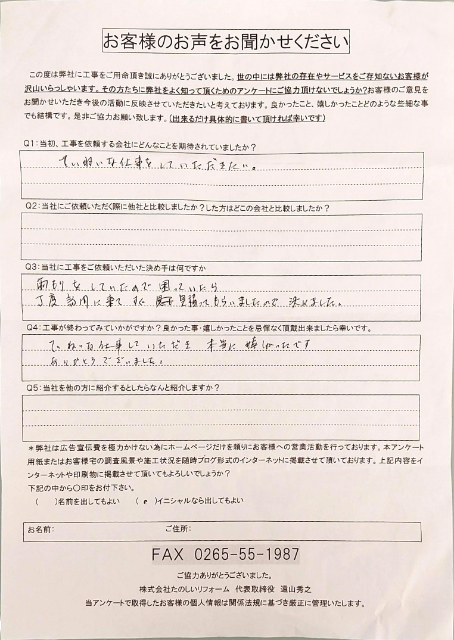 お客様のお声をお聞かせください
この度は弊社に工事をご用命頂き誠にありがとうございました。世の中には弊社の存在やサービスをご存知ないお客様が
沢山いらっしゃいます。その方たちに弊社をよく知って頂くためのアンケートにご協力頂けないでしょうか?お客様のご意見を
お聞かせいただき今後の活動に反映させていただきたいと考えております。良かったこと、嬉しかったことどのような些細な事
でも結構です。是非ご協力お願い致します。(出来るだけ具体的に書いて頂ければ幸いです)
Q1:当初、工事を依頼する会社にどんなことを期待されていましたか?
てい ねいな仕事をしていただきたい。
Q2:当社にご依頼いただく際に他社と比較しましたか?した方はどこの会社と比較しましたか?
Q3:当社に工事をご依頼いただいた決め手は何ですか
雨もりをしていたので困っていたら
丁度訪問に来て すぐ 見積ってもらいましたので 決めました。
Q4:工事が終わってみていかがですか?良かった事・嬉しかったことを忌憚なく頂戴出来ましたら幸いです。
ていねいな仕事していただき 本当に嬉しかったです
ありがとうございました。
Q5:当社を他の方に紹介するとしたらなんと紹介しますか?
*弊社は広告宣伝費を極力かけない為にホームページだけを頼りにお客様への営業活動を行っております。本アンケート
用紙またはお客様宅の調査風景や施工状況を随時ブログ形式のインターネットに掲載させて頂いております。上記内容をイ
ンターネットや印刷物に掲載させて頂いてもよろしいでしょうか?
下記の中から〇印をお付下さい。
( )名前を出してもよい ( )イニシャルなら出してもよい
お名前: ご住所:
FAX 0265-55-1987
ご協力ありがとうございました。
株式会社たのしいリフォーム 代表取締役 遠山秀之
当アンケートで取得したお客様の個人情報は関係法規に基づき厳正に管理いたします。